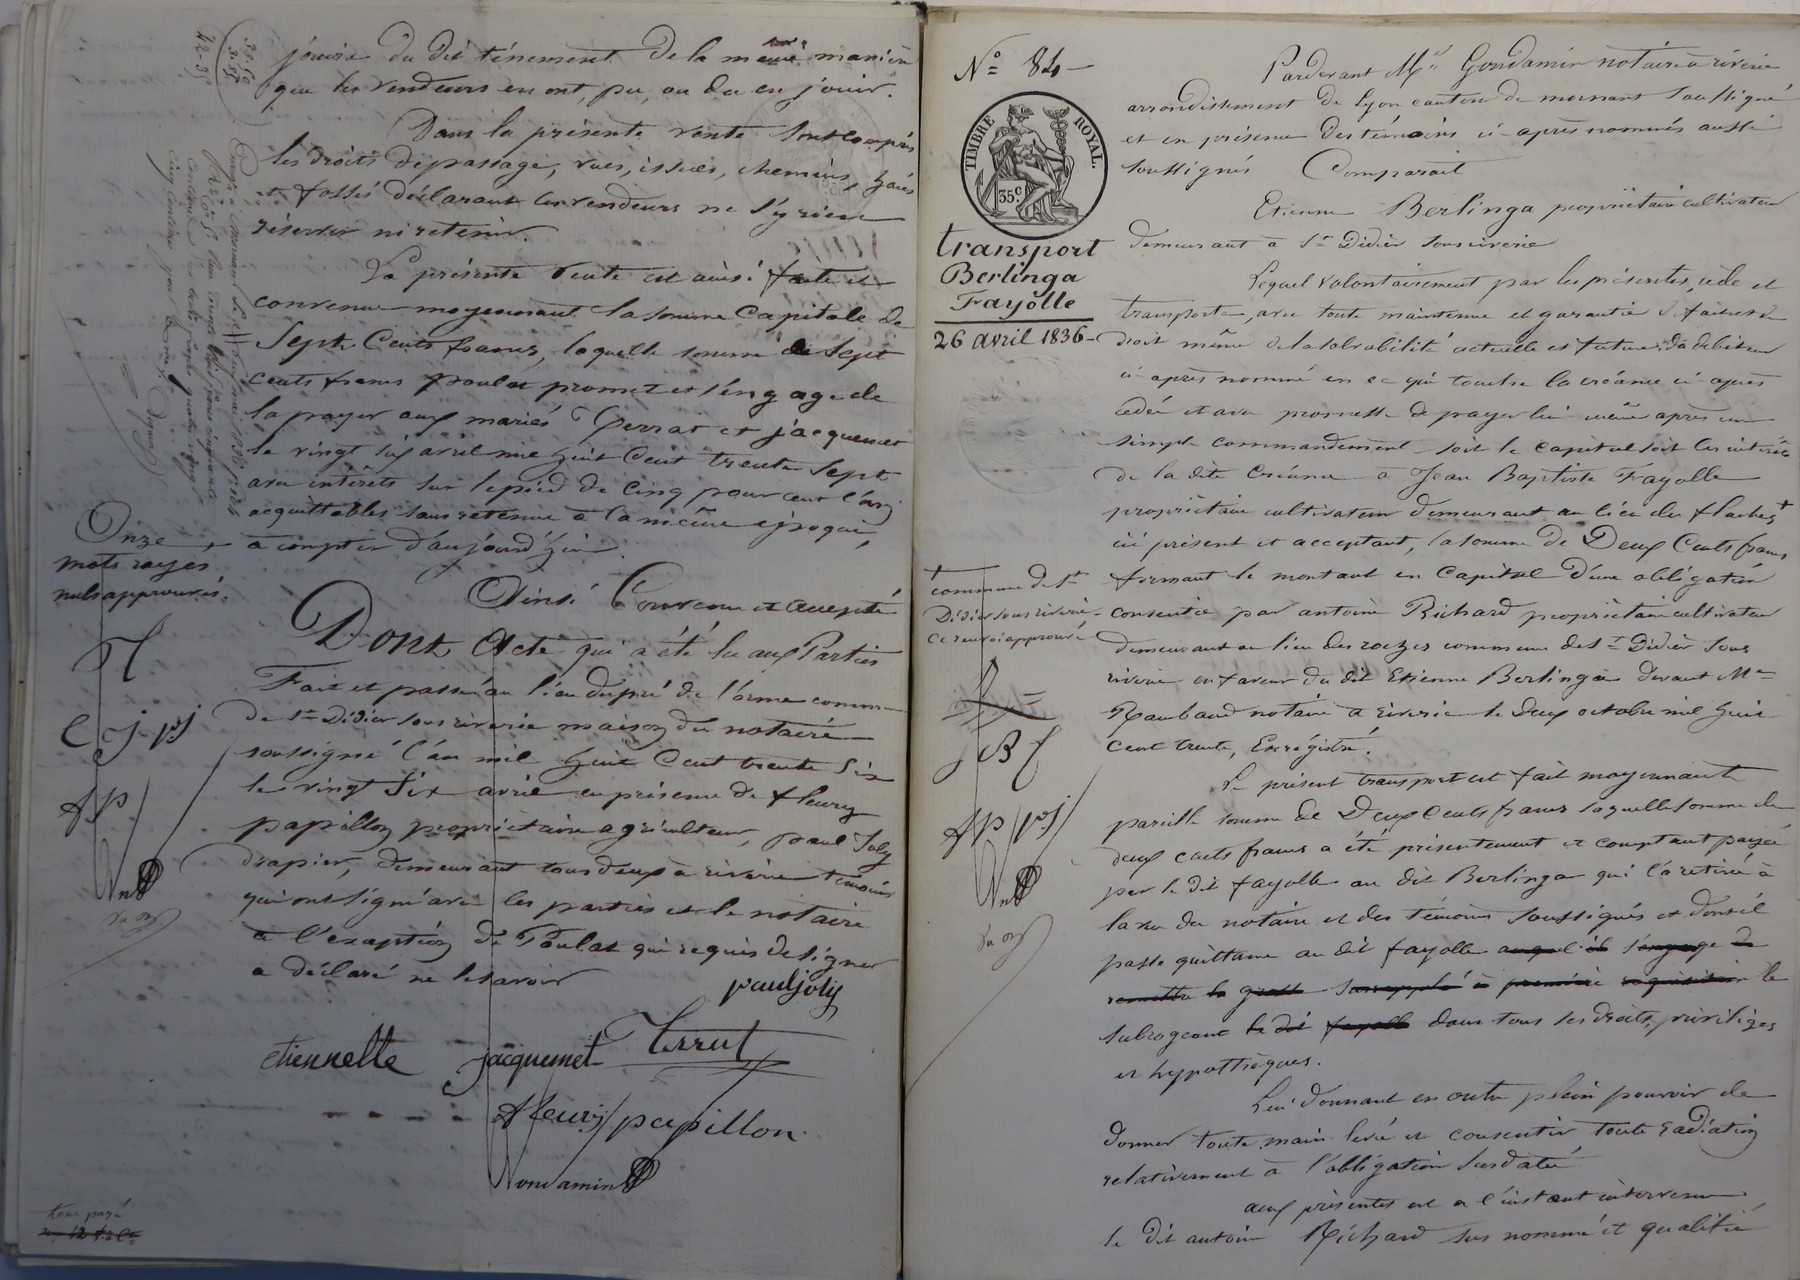 jouir du dit ténement de la même manière
que les vendeurs en ont, pu, ou du en jouir.
Dans la présente vente sont compris
les droits de passage, vues, issues, chemins, haies
et fossés déclarant les vendeurs ne s'y rien
réserver ni retenir.
La présente vente est ainsi faite et
convenue moyennant la somme Capitale de
Sept Cents francs, laquelle somme de Sept
cents francs Poulat promet et s'engage de
la payer aux mariés Terrat et jacquemet
le vingt six avril mil huit Cent trente Sept
avec intérêts sur le pied de Cinq pour cent l'an
acquittables sans retenue à la même époque,
à compter d'aujourd'hui.
Ainsi Convenu et accepté
Dont Acte qui a été lu aux Parties
Fait et passé au lieu du pré de l'orme commune
de St Didier sous riverie maison du notaire
soussigné l'an mil huit Cent trente Six
le vingt Six avril en présence de fleury
papillon propriétaire agriculteur, paul Joly
drapier, demeurant tous deux à riverie témoins
qui ont signé avec les parties et le notaire
à l'exception de Poulat qui requis de signer
a déclaré ne le savoir
paul joly
etiennette jacquemet Terrat
fleury papillon
Gondamin
Onze
mots rayés
nuls approuvés.
E J pj
fp
tout payé
N° 84
TIMBRE ROYAL.
35 c
transport
Berlinga
Fayolle
26 avril 1836
Pardevant Me Gondamin notaire à riverie
arrondissement de Lyon canton de mornant Soussigné
et en présence des témoins ci-après nommés aussi
soussignés Comparait
Etienne Berlinga propriétaire cultivateur
demeurant à St Didier sous riverie
Lequel volontairement par les présentes, cède et
transporte, avec toute maintenue et garantie de faits et de
droit même de la solvabilité actuelle et future du débiteur
ci-après nommé en ce qui touche la créance ci-après
cédée et avec promesse de payer lui même après un
simple commandement soit le capital soit les intérêts
de la dite Créance a Jean Baptiste Fayolle
propriétaire cultivateur demeurant au lieu des flaches +
ici présent et acceptant, la somme de Deux Cents francs
formant le montant en Capital d'une obligation
consentie par antoine Richard propriétaire cultivateur
demeurant au lieu des commune de St Didier sous
riverie en faveur du dit Etienne Berlinga devant Me
Raimbaud notaire à riverie le deux octobre mil huit
cent trente, Enregistré.
Le présent transport est fait moyennant
pareille somme de Deux Cents francs laquelle somme de
deux cents francs a été présentement et comptant payée
par le dit fayolle au dit Berlinga qui l'a retirée à
la vue du notaire et des témoins soussignés et dont il
passe quittance au dit fayolle auquel il s'engage de
remettre la grosse à première réquisition le
subrogeant le dit fayolle dans tous ses droits, privilèges
et hypothèques.
Lui donnant en outre plein pouvoir de
donner toute main levée et consentir toute radiation
relativement à l'obligation susdatée
aux présentes est a l'instant intervenu
le dit antoine Richard sus nommé et qualifié
+ commune de St
Didier sous riverie
ce renvoi approuvé
B
fp pj